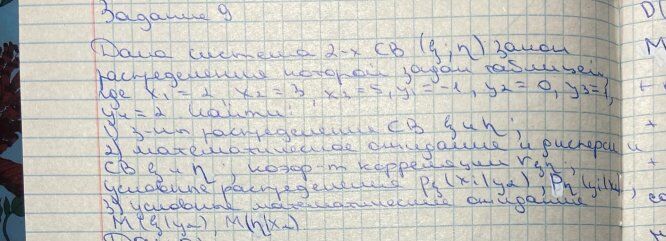 Задание 9
Дана система 2-х СВ (ξ; η) закон
распределения которой задан таблицей,
где x₁ = 2, x₂ = 3, x₃ = 5, y₁ = -1, y₂ = 0, y₃ = 1,
y₄ = 2. Найти:
1) з-ны распределения СВ ξ и η;
2) математическое ожидание и дисперсии
СВ ξ и η; коэф-т корреляции rξη;
условные распределения Pξ(xi|y2), Pη(yi|x
3) условные математические ожидания
M(ξ|y₂), M(η|x₂)
D(
M
+
+